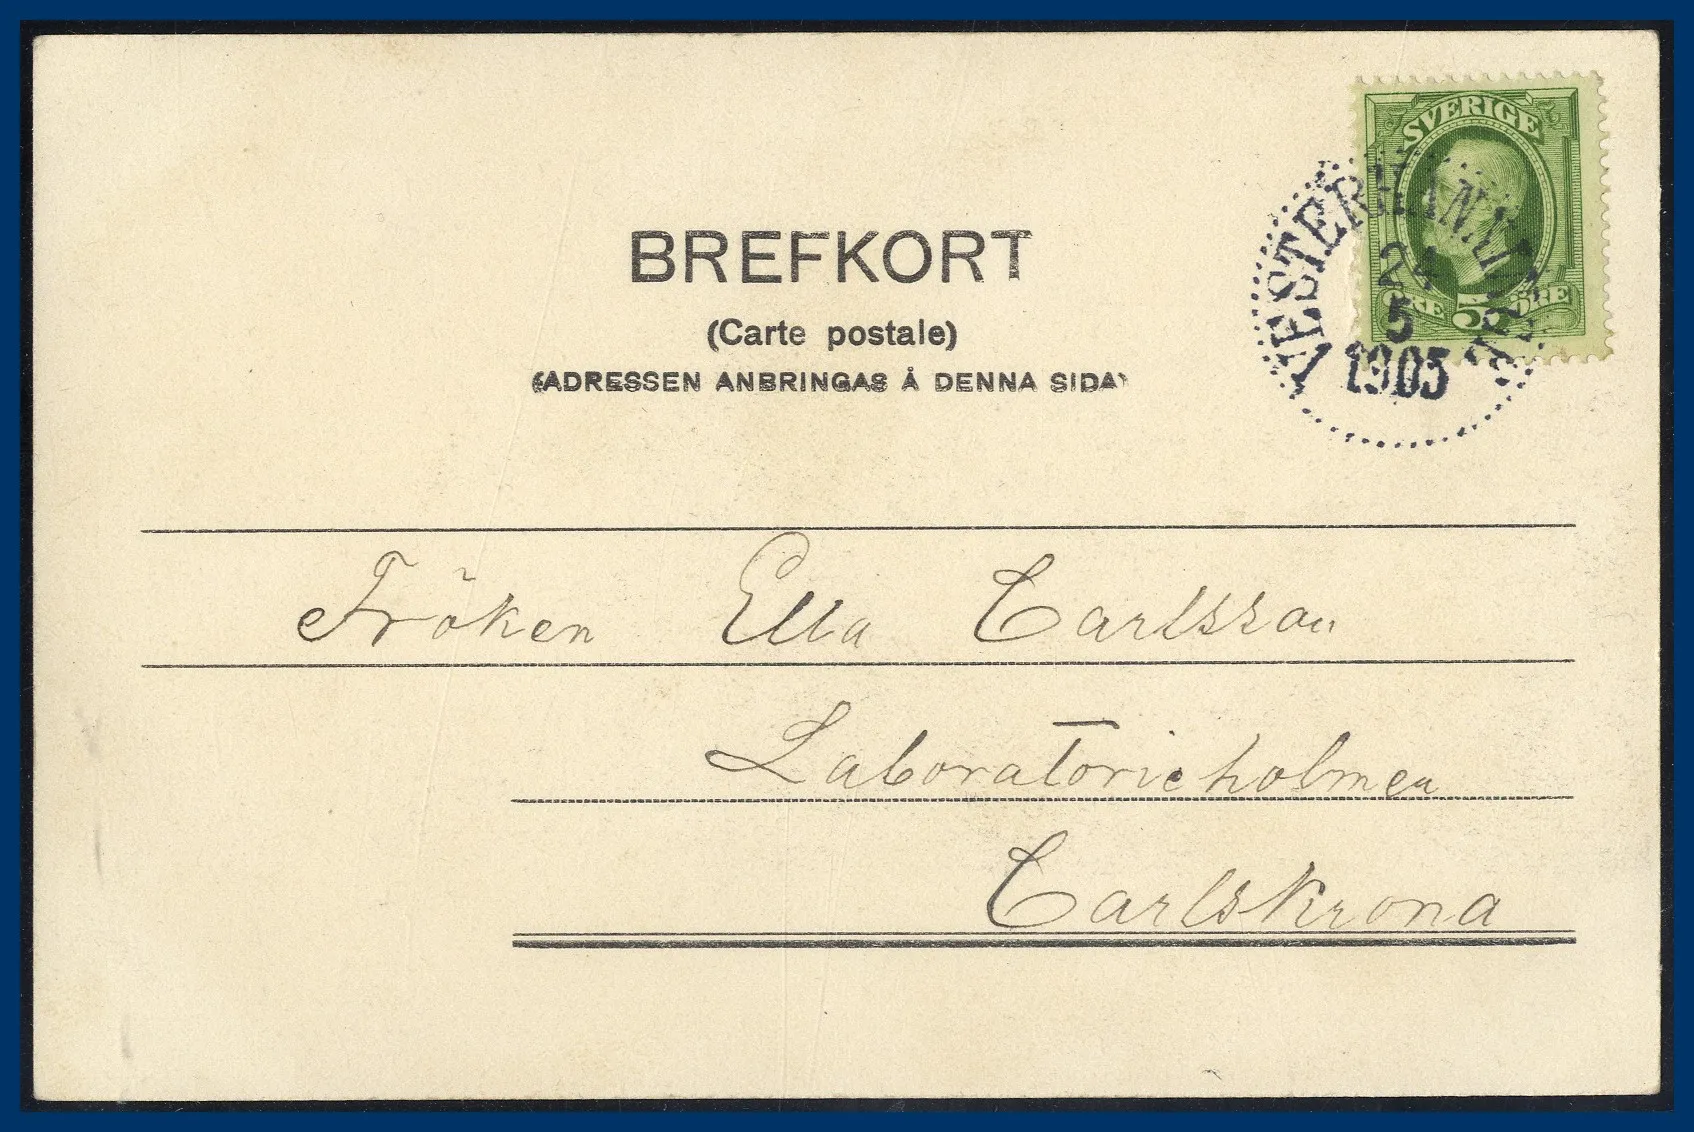 SVERIGE
5
ÖRE ÖRE
24
5
1905
BREFKORT
(Carte postale)
(ADRESSEN ANBRINGAS Å DENNA SIDA)
Fröken Ella Carlsson
Laboratorieholmen
Carlskrona